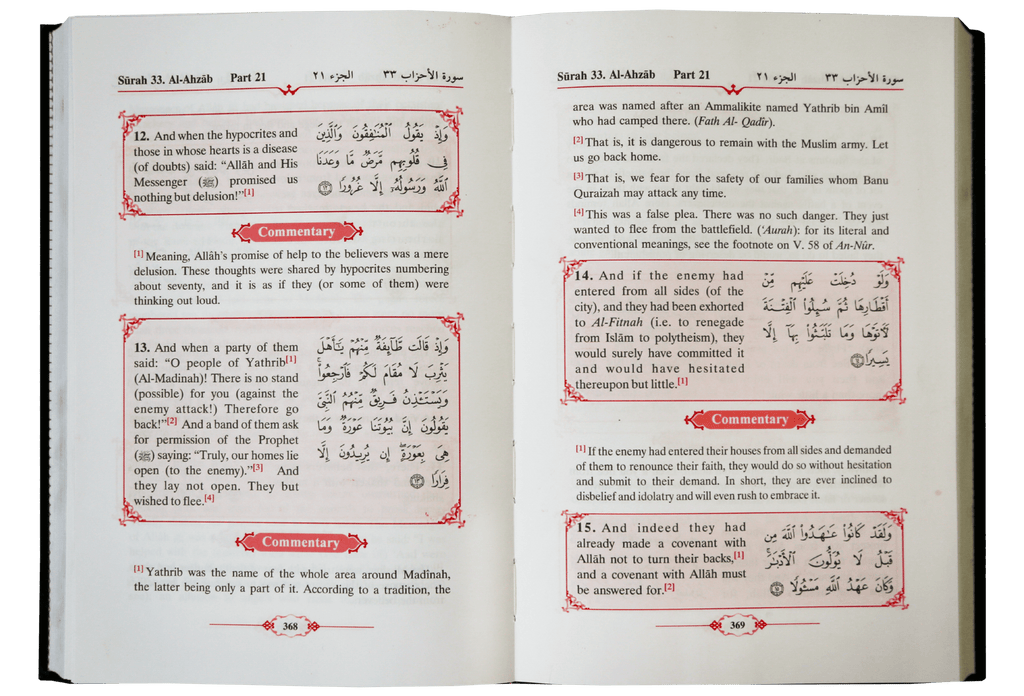 Sūrah 33. Al-Ahzāb Part 21 الجزء ٢١ سورة الأحزاب ٣٣
12. And when the hypocrites and
those in whose hearts is a disease
(of doubts) said: “Allāh and His
Messenger (ﷺ) promised us
nothing but delusion!”[1]
وَإِذْ يَقُولُ ٱلْمُنَٰفِقُونَ وَٱلَّذِينَ
فِى قُلُوبِهِم مَّرَضٌ مَّا وَعَدَنَا
ٱللَّهُ وَرَسُولُهُۥٓ إِلَّا غُرُورًا ١٢
Commentary
[1] Meaning, Allâh’s promise of help to the believers was a mere
delusion. These thoughts were shared by hypocrites numbering
about seventy, and it is as if they (or some of them) were
thinking out loud.
13. And when a party of them
said: “O people of Yathrib[1]
(Al-Madinah)! There is no stand
(possible) for you (against the
enemy attack!) Therefore go
back!”[2] And a band of them ask
for permission of the Prophet
(ﷺ) saying: “Truly, our homes lie
open (to the enemy).”[3] And
they lay not open. They but
wished to flee.[4]
وَإِذْ قَالَت طَّآئِفَةٌ مِّنْهُمْ يَٰٓأَهْلَ
يَثْرِبَ لَا مُقَامَ لَكُمْ فَٱرْجِعُوا۟ ۚ
وَيَسْتَـْٔذِنُ فَرِيقٌ مِّنْهُمُ ٱلنَّبِىَّ
يَقُولُونَ إِنَّ بُيُوتَنَا عَوْرَةٌ وَمَا
هِىَ بِعَوْرَةٍ ۖ إِن يُرِيدُونَ إِلَّا
فِرَارًا ١٣
Commentary
[1] Yathrib was the name of the whole area around Madînah,
the latter being only a part of it. According to a tradition, the
368
Sūrah 33. Al-Ahzāb Part 21 الجزء ٢١ سورة الأحزاب ٣٣
area was named after an Ammalikite named Yathrib bin Amîl
who had camped there. (Fath Al- Qadîr).
[2] That is, it is dangerous to remain with the Muslim army. Let
us go back home.
[3] That is, we fear for the safety of our families whom Banu
Quraizah may attack any time.
[4] This was a false plea. There was no such danger. They just
wanted to flee from the battlefield. (‘Aurah): for its literal and
conventional meanings, see the footnote on V. 58 of An-Nûr.
14. And if the enemy had
entered from all sides (of the
city), and they had been exhorted
to Al-Fitnah (i.e. to renegade
from Islām to polytheism), they
would surely have committed it
and would have hesitated
thereupon but little.[1]
وَلَوْ دُخِلَتْ عَلَيْهِم مِّنْ
أَقْطَارِهَا ثُمَّ سُئِلُوا۟ ٱلْفِتْنَةَ
لَءَاتَوْهَا وَمَا تَلَبَّثُوا۟ بِهَآ إِلَّا
يَسِيرًا ١٤
Commentary
[1] If the enemy had entered their houses from all sides and demanded
of them to renounce their faith, they would do so without hesitation
and submit to their demand. In short, they are ever inclined to
disbelief and idolatry and will even rush to embrace it.
15. And indeed they had
already made a covenant with
Allāh not to turn their backs,[1]
and a covenant with Allāh must
be answered for.[2]
وَلَقَدْ كَانُوا۟ عَٰهَدُوا۟ ٱللَّهَ مِن
قَبْلُ لَا يُوَلُّونَ ٱلْأَدْبَٰرَ ۚ
وَكَانَ عَهْدُ ٱللَّهِ مَسْـُٔولًا ١٥
369